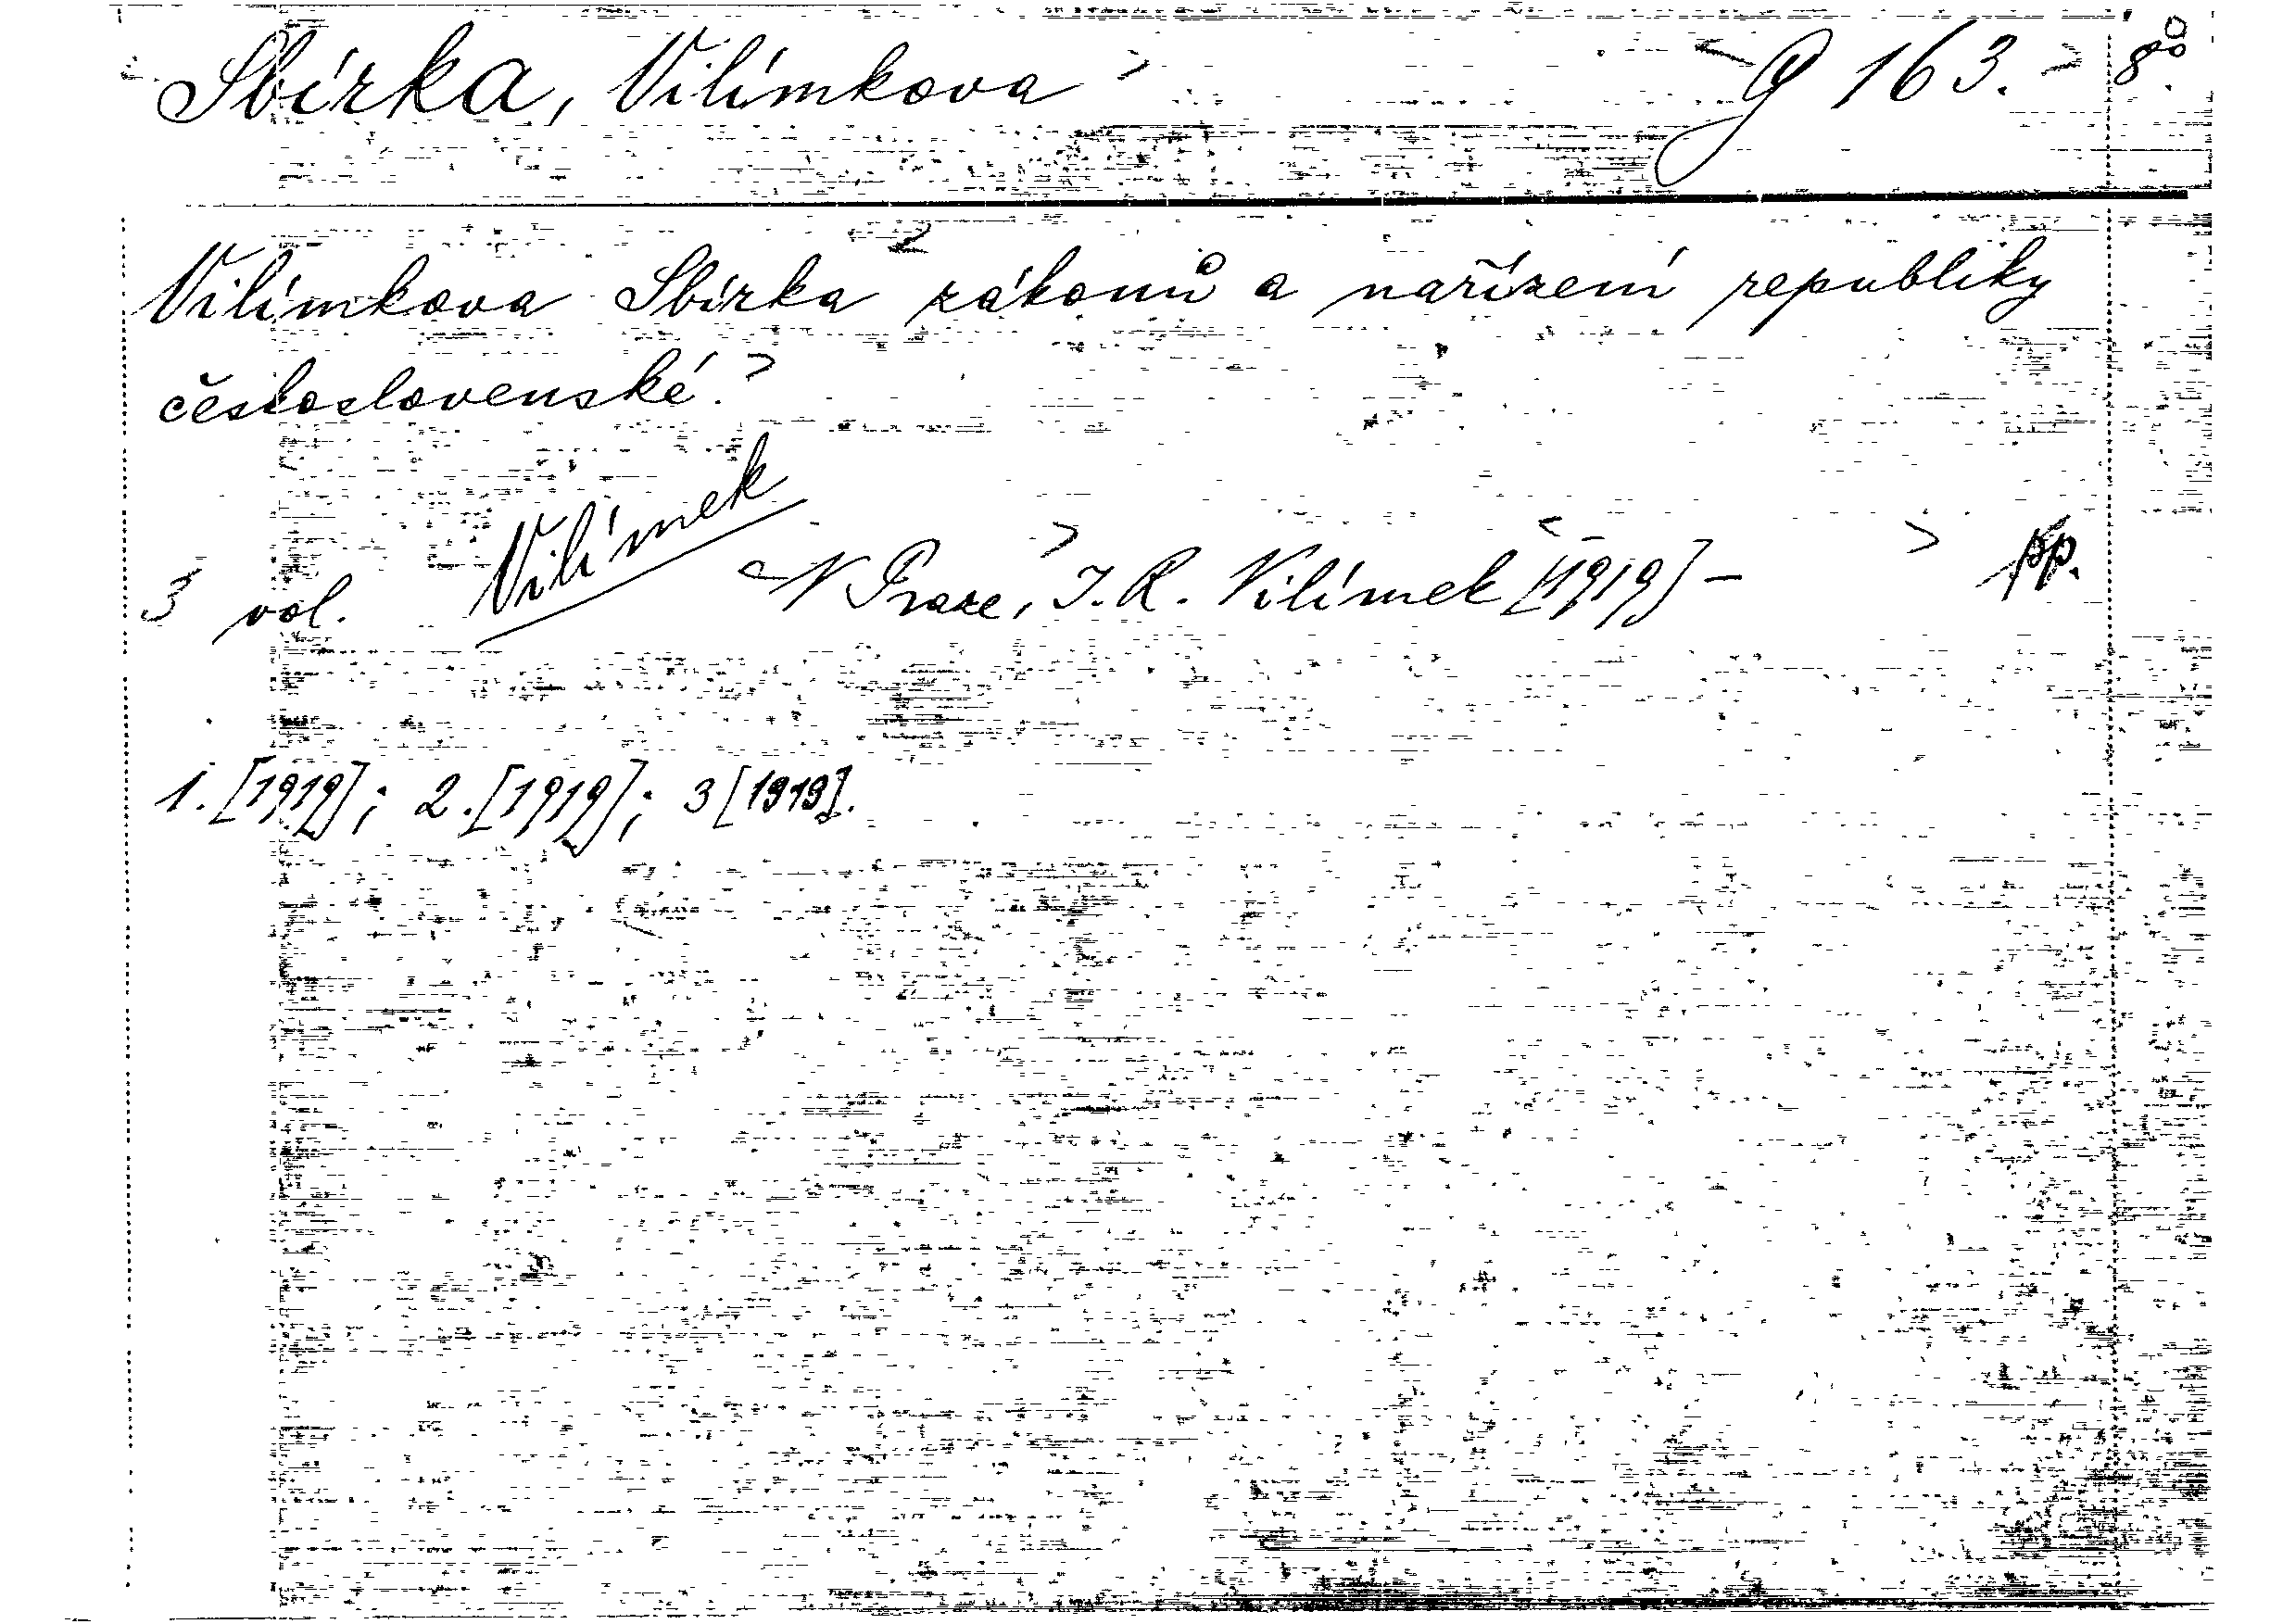 Sbírka, Vilímkova > < G 163. > 8°.
< Vilímkova Sbírka zákonů a nařízení republiky
československé. >
Vilímek
3 vol. < V Praze, > J. R. Vilímek < [1919] – > pp.
1. [1919]; 2. [1919]; 3 [1919].